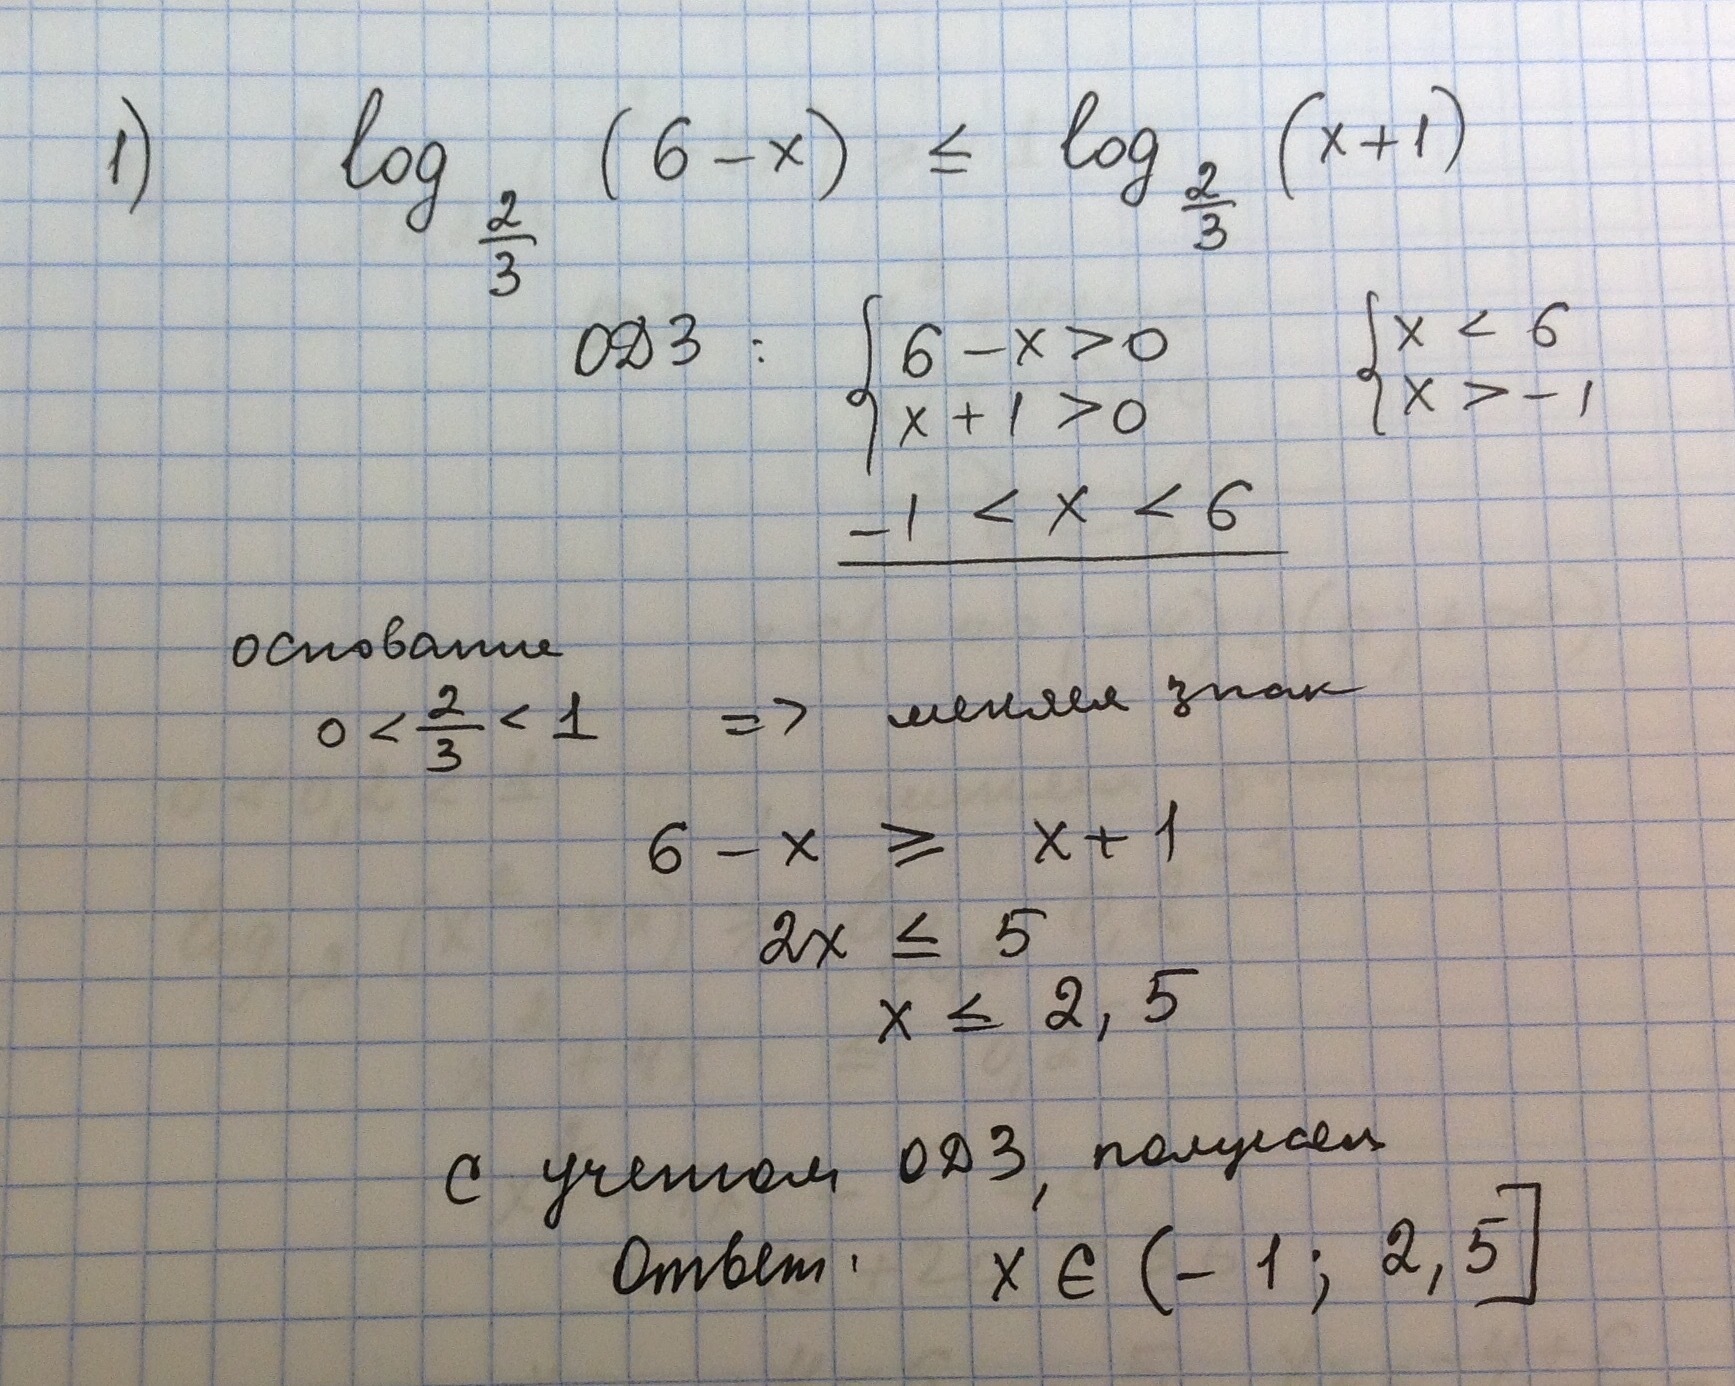 1) log 2/3 (6-x) ≤ log 2/3 (x+1)
ОДЗ: { 6-x>0 { x < 6
x+1>0 x > -1
-1 < x < 6
основание
0 < 2/3 < 1 => меняем знак
6-x ≥ x+1
2x ≤ 5
x ≤ 2,5
с учетом ОДЗ, получаем
Ответ: x ∈ (-1; 2,5]